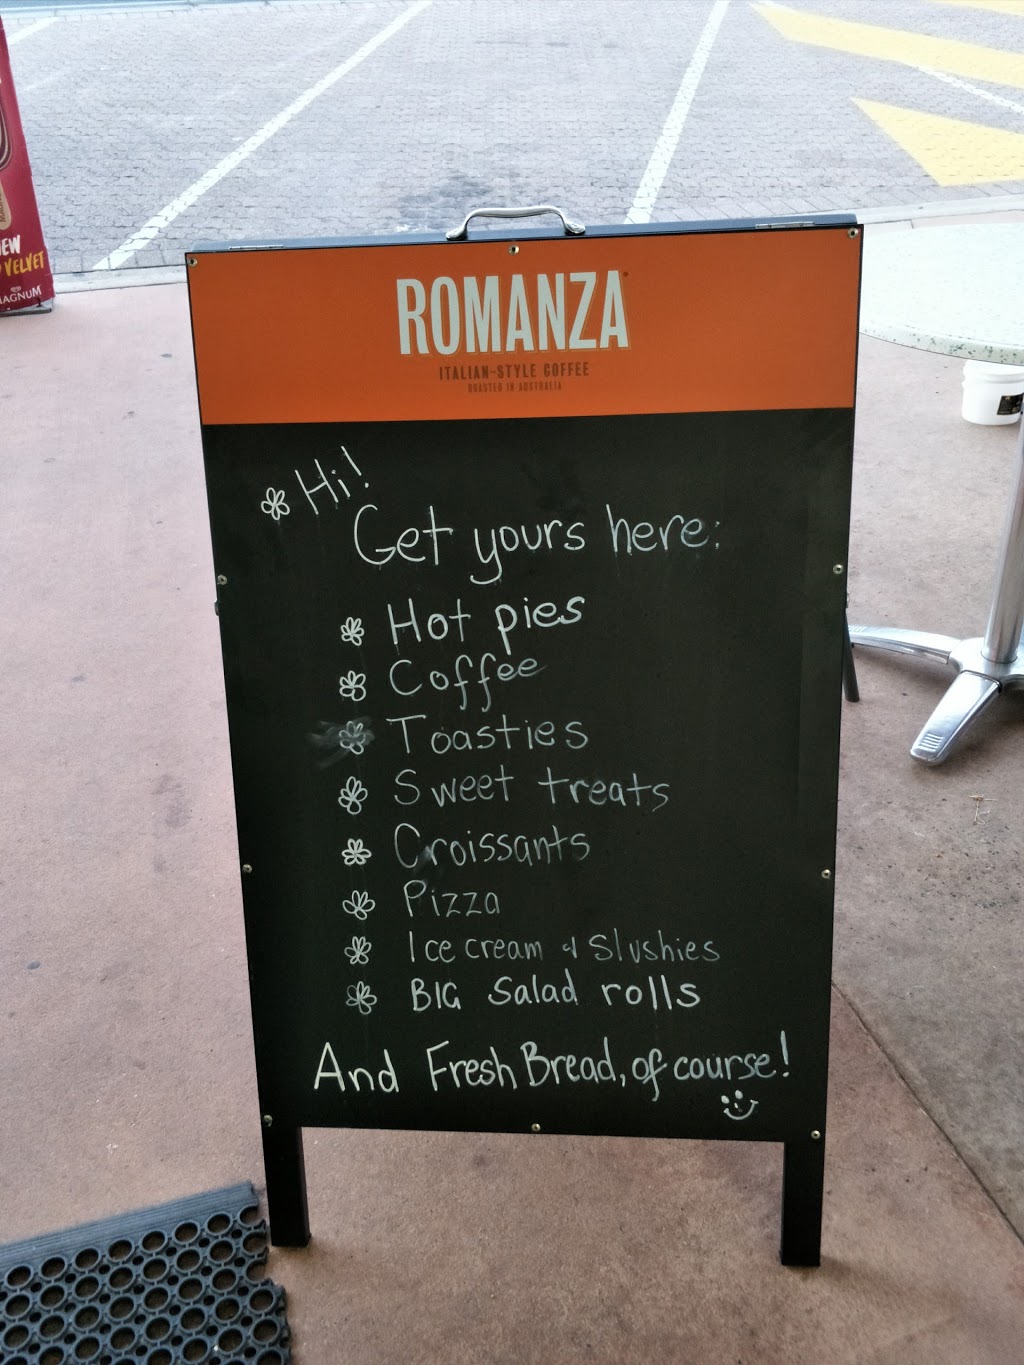 ROMANZA
ITALIAN-STYLE COFFEE
ROASTED IN AUSTRALIA
Hi!
Get yours here:
Hot pies
Coffee
Toasties
Sweet treats
Croissants
Pizza
Ice cream & Slushies
BIG Salad rolls
And Fresh Bread, of course!
VELVET
MAGNUM